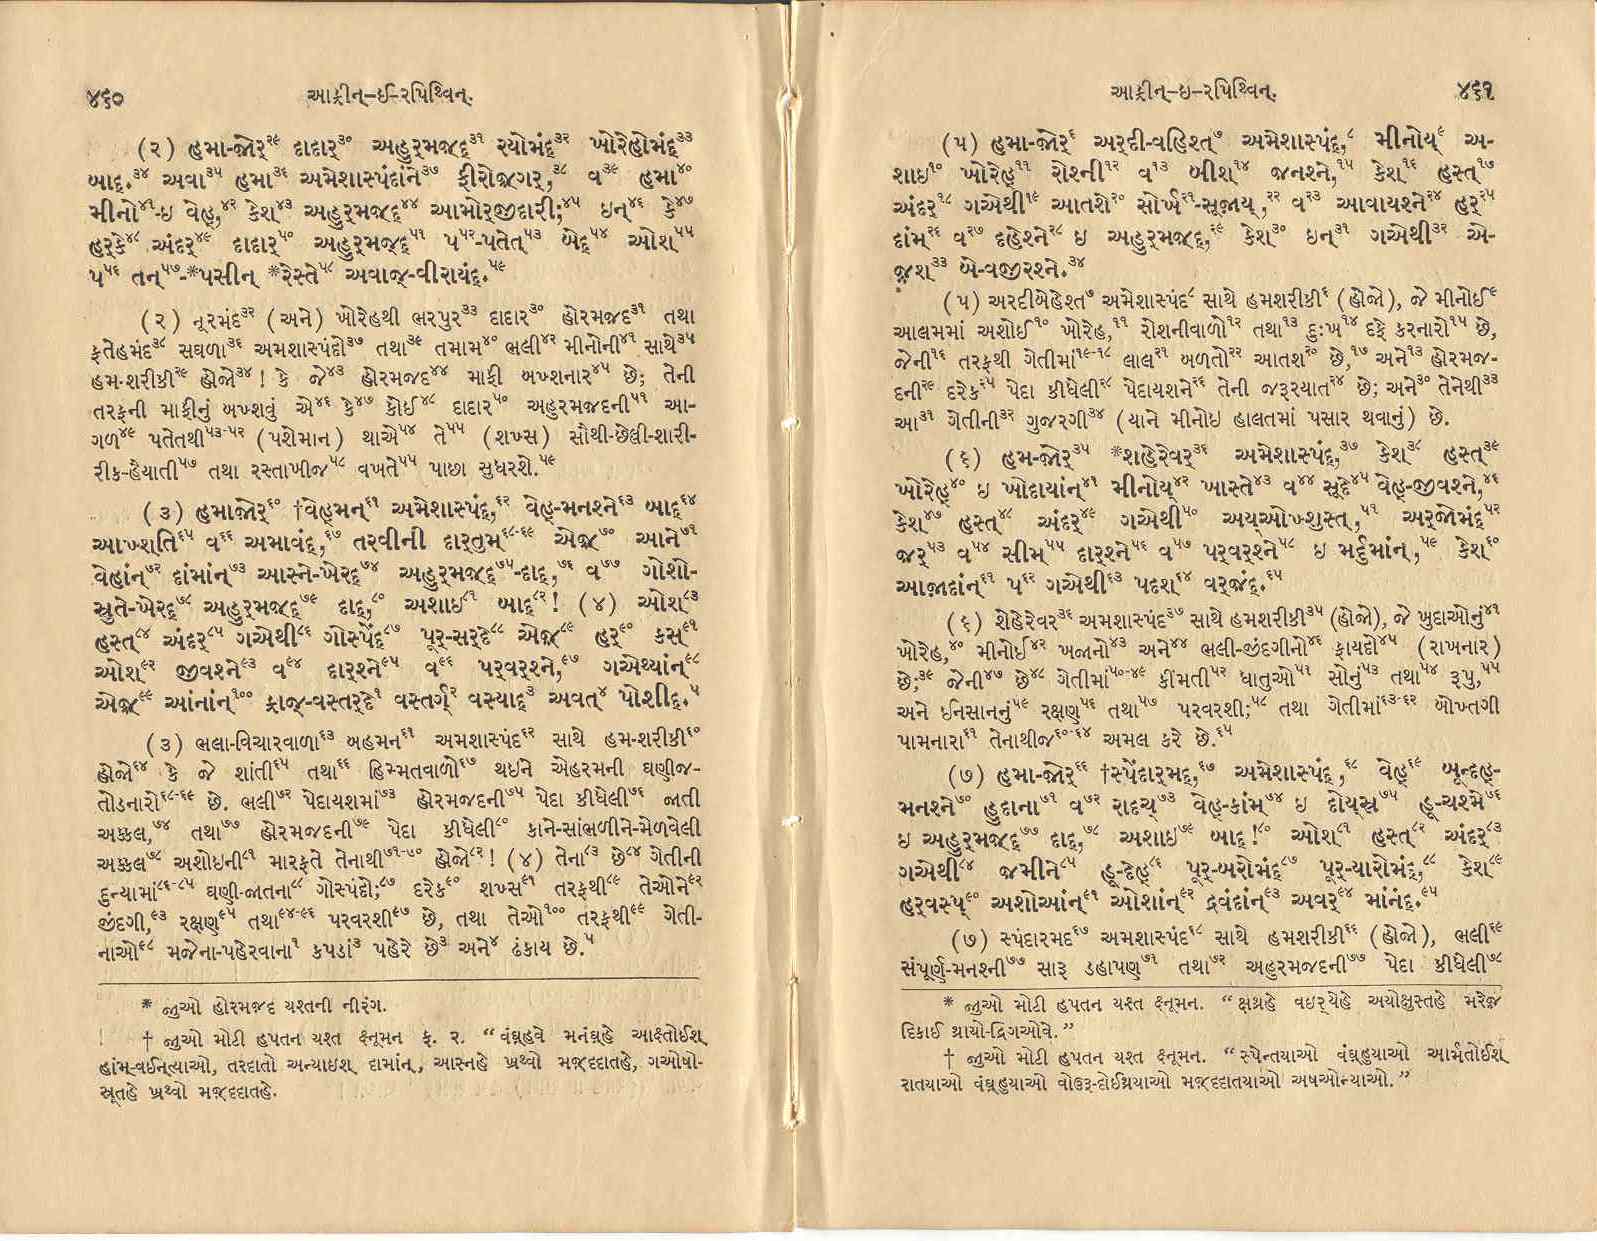 ૪૬૦
આફ્રીન્-ઈ-રપિથ્વિન્.
(૨) હમા-જોર્૨૯ દાદાર્૩૦ અહુર્મજદ્૩૧ રયોમંદ્૩૨ ખોરેહોમંદ્૩૩
બાદ્.૩૪ અવા૩૫ હમા૩૬ અમેશાસ્પંદાંને૩૭ ફીરોજ઼ગર્,૩૮ વ૩૯ હમા૪૦
મીનો૪૧-ઇ વેહ્,૪૨ કેશ્૪૩ અહુર્મજદ્૪૪ આમોર્જીદારી;૪૫ ઇન્૪૬ કે૪૭
હર્કે૪૮ અંદર્૪૯ દાદાર્૫૦ અહુર્મજદ્૫૧ પ૫૨-પતેત્૫૩ બેદ્૫૪ ઓશ૫૫
પ૫૬ તન્૫૭-*પસીન્ *રેસ્તે૫૮ અવાજ્-વીરાયંદ્.૫૯
(૨) નૂરમંદ૩૨ (અને) ખોરેહથી ભરપુર૩૩ દાદાર૩૦ હોરમજદ૩૧ તથા
ફતેહમંદ૩૮ સઘળા૩૬ અમશાસ્પંદો૩૭ તથા૩૯ તમામ૪૦ ભલી૪૨ મીનોની૪૧ સાથે૩૫
હમ-શરીકી૨૯ હોજો૩૪! કે જે૪૩ હોરમજદ૪૪ માફી બખ્શનાર૪૫ છે; તેની
તરફની માફીનું બખ્શવું એ૪૬ કે૪૭ કોઈ૪૮ દાદાર૫૦ અહુરમજદની૫૧ આ-
ગળ૪૯ પતેતથી૫૩-૫૨ (પશેમાન) થાએ૫૪ તે૫૫ (શખ્સ) સૌથી-છેલી-શારી-
રીક-હૈયાતી૫૭ તથા રસ્તાખીજ૫૮ વખતે૫૫ પાછા સુધરશે.૫૯
(૩) હમાજોર્૬૦ †વેહ્મન્૬૧ અમેશાસ્પંદ્,૬૨ વેહ્-મનશ્ને૬૩ બાદ્૬૪
આખ્શતિ૬૫ વ૬૬ અમાવંદ્,૬૭ તરવીની દાર્તુમ્૬૮-૬૯ એજ઼૭૦ આને૭૧
વેહાંન્૭૨ દાંમાંન્૭૩ આસ્ને-ખેરદ્૭૪ અહુર્મજદ્૭૫-દાદ્,૭૬ વ૭૭ ગોશો-
સ્રુતે-ખેરદ્૭૮ અહુર્મજદ્૭૯ દાદ્,૮૦ અશાઇ૮૧ બાદ્૮૨! (૪) ઓશ૮૩
હસ્ત્૮૪ અંદર્૮૫ ગએથી૮૬ ગોસ્પેંદ્૮૭ પૂર્-સર્દે૮૮ એજ઼૮૯ હર્૯૦ કસ્૯૧
ઓશ૯૨ જીવશ્ને૯૩ વ૯૪ દાર્શ્ને૯૫ વ૯૬ પર્વર્શ્ને,૯૭ ગએથ્યાંન્૯૮
એજ઼૯૯ આંનાંન્૧૦૦ ફ્રાજ્-વસ્તર્દે૧ વસ્તર્ગ્૨ વસ્યાદ્૩ અવત્૪ પોશીદ્.૫
(૩) ભલા-વિચારવાળા૬૩ બહમન૬૧ અમશાસ્પંદ૬૨ સાથે હમ-શરીકી૬૦
હોજો૬૪ કે જે શાંતી૬૫ તથા૬૬ હિમ્મતવાળો૬૭ થઇને એહરમની ઘણીજ-
તોડનારો૬૮-૬૯ છે. ભલી૭૨ પેદાયશમાં૭૩ હોરમજદની૭૫ પેદા કીધેલી૭૬ જાતી
અક્કલ,૭૪ તથા૭૭ હોરમજદની૭૯ પેદા કીધેલી૮૦ કાને-સાંભળીને-મેળવેલી
અક્કલ૭૮ અશોઇની૮૧ મારફતે તેનાથી૭૧-૭૦ હોજો૮૨! (૪) તેના૮૩ છે૮૪ ગેતીની
દુન્યામાં૮૬-૮૫ ઘણી-જાતના૮૮ ગોસ્પંદો;૮૭ દરેક૯૦ શખ્સ૯૧ તરફથી૮૯ તેઓને૯૨
જીંદગી,૯૩ રક્ષણ૯૫ તથા૯૪-૯૬ પરવરશી૯૭ છે, તથા તેઓ૧૦૦ તરફથી૯૯ ગેતી-
નાઓ૯૮ મજેના-પહેરવાના૧ કપડાં૩ પહેરે છે૩ અને૪ ઢંકાય છે.૫
* જુઓ હોરમજદ યશ્તની નીરંગ.
† જુઓ મોટી હપતન યશ્ત ક્ષ્નૂમન ફ. ૨. “વંઘ્હવે મનંઘ્હે આક્ષ્તોઈશ્
હાંમ્-વઈન્ત્યાઓ, તરદાતો અન્યાઇશ્ દામાંન્, આસ્નહે ખ્રથ્વો મજ઼્દદાતહે, ગઓષો-
સ્રૂતહે ખ્રથ્વો મજ઼્દદાતહે.
આફ્રીન્-ઇ-રપિથ્વિન્.
૪૬૧
(૫) હમા-જોર્૬ અર્દી-વહિશ્ત્૭ અમેશાસ્પંદ્,૮ મીનોય્૯ અ-
શાઇ૧૦ ખોરેહ્૧૧ રોશ્ની૧૨ વ૧૩ બીશ્૧૪ જનશ્ને,૧૫ કેશ૧૬ હસ્ત્૧૭
અંદર્૧૮ ગએથી૧૯ આતશે૨૦ સોર્ખ૨૧-સૂજાય્,૨૨ વ૨૩ આવાયશ્ને૨૪ હર્૨૫
દાંમ્૨૬ વ૨૭ દહેશ્ને૨૮ ઇ અહુર્મજદ્,૨૯ કેશ૩૦ ઇન્૩૧ ગએથી૩૨ એ-
જ઼શ૩૩ બે-વજીરશ્ને.૩૪
(૫) અરદીબેહેશ્ત૭ અમેશાસ્પંદ૮ સાથે હમશરીકી૬ (હોજો), જે મીનોઈ૯
આલમમાં અશોઈ૧૦ ખોરેહ,૧૧ રોશનીવાળો૧૨ તથા૧૩ દુઃખ૧૪ દફે કરનારો૧૫ છે,
જેની૧૬ તરફથી ગેતીમાં૧૯-૧૮ લાલ૨૧ બળતો૨૨ આતશ૨૦ છે,૧૭ અને૧૩ હોરમજ-
દની૨૯ દરેક૨૫ પેદા કીધેલી૨૮ પેદાયશને૨૬ તેની જરૂરયાત૨૪ છે; અને૩૦ તેનેથી૩૩
આ૩૧ ગેતીની૩૨ ગુજરગી૩૪ (યાને મીનોઇ હાલતમાં પસાર થવાનું) છે.
(૬) હમ-જોર્૩૫ *શહેરેવર્૩૬ અમેશાસ્પંદ્,૩૭ કેશ૩૮ હસ્ત્૩૯
ખોરેહ્૪૦ ઇ ખોદાયાંન્૪૧ મીનોય્૪૨ ખાસ્તે૪૩ વ૪૪ સૂદે૪૫ વેહ્-જીવશ્ને,૪૬
કેશ૪૭ હસ્ત્૪૮ અંદર્૪૯ ગએથી૫૦ અય્ઓખ્શુસ્ત્,૫૧ અર્જોમંદ્૫૨
જર્૫૩ વ૫૪ સીમ્૫૫ દાર્શ્ને૫૬ વ૫૭ પર્વર્શ્ને૫૮ ઇ મર્દુમાંન્,૫૯ કેશ૬૦
આજ઼ાદાંન્૬૧ પ૬૨ ગએથી૬૩ પદશ૬૪ વર્જંદ્.૬૫
(૬) શેહેરેવર૩૬ અમશાસ્પંદ૩૭ સાથે હમશરીકી૩૫ (હોજો), જે ખુદાઓનું૪૧
ખોરેહ,૪૦ મીનોઈ૪૨ ખજાનો૪૩ અને૪૪ ભલી-જીંદગીનો૪૬ ફાયદો૪૫ (રાખનાર)
છે;૩૯ જેની૪૭ છે૪૮ ગેતીમાં૫૦-૪૯ કીંમતી૫૨ ધાતુઓ૫૧ સોનું૫૩ તથા૫૪ રૂપુ,૫૫
અને ઈનસાનનું૫૯ રક્ષણ૫૬ તથા૫૭ પરવરશી;૫૮ તથા ગેતીમાં૬૩-૬૨ બોખ્તગી
પામનારા૬૧ તેનાથીજ૬૦-૬૪ અમલ કરે છે.૬૫
(૭) હમા-જોર્૬૬ †સ્પેંદાર્મદ્,૬૭ અમેશાસ્પંદ્,૬૮ વેહ્૬૯ બૂન્દહ્-
મનશ્ને૭૦ હુદાના૭૧ વ૭૨ રાદચ્૭૩ વેહ્-કાંમ્૭૪ ઇ દોય્સ્ર૭૫ હૂ-ચશ્મે૭૬
ઇ અહુર્મજદ્૭૭ દાદ્,૭૮ અશાઇ૭૯ બાદ્!૮૦ ઓશ૮૧ હસ્ત્૮૨ અંદર્૮૩
ગએથી૮૪ જમીને૮૫ હૂ-દેહ્૮૬ પૂર્-બરોમંદ્૮૭ પૂર્-યારોમંદ્,૮૮ કેશ૮૯
હર્વસ્પ્૯૦ અશોઆંન્૯૧ ઓશાંન્૯૨ દ્રવંદાંન્૯૩ અવર્૯૪ માંનંદ્.૯૫
(૭) સ્પંદારમદ૬૭ અમશાસ્પંદ૬૮ સાથે હમશરીકી૬૬ (હોજો), ભલી૬૯
સંપૂર્ણ-મનશ્ની૭૭ સારૂ ડહાપણ૭૧ તથા૭૨ અહુરમજદની૭૭ પેદા કીધેલી૭૮
* જુઓ મોટી હપતન યશ્ત ક્ષ્નૂમન. “ક્ષથ્રહે વઇર્યેહે અયોક્ષુસ્તહે મરેજ઼
દિકાઈ થ્રાયો-દ્રિગઓવે.”
† જુઓ મોટી હપતન યશ્ત ક્ષ્નૂમન. “સ્પેન્તયાઓ વંઘ્હુયાઓ આર્મતોઈશ્
રાતયાઓ વંઘ્હુયાઓ વોઉરૂ-દોઈથ્રયાઓ મજ઼્દદાતયાઓ અષઓન્યાઓ.”